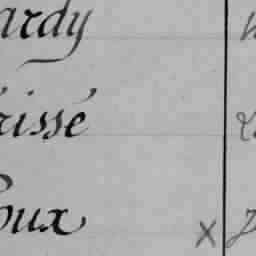 ardy
rissé
oux x